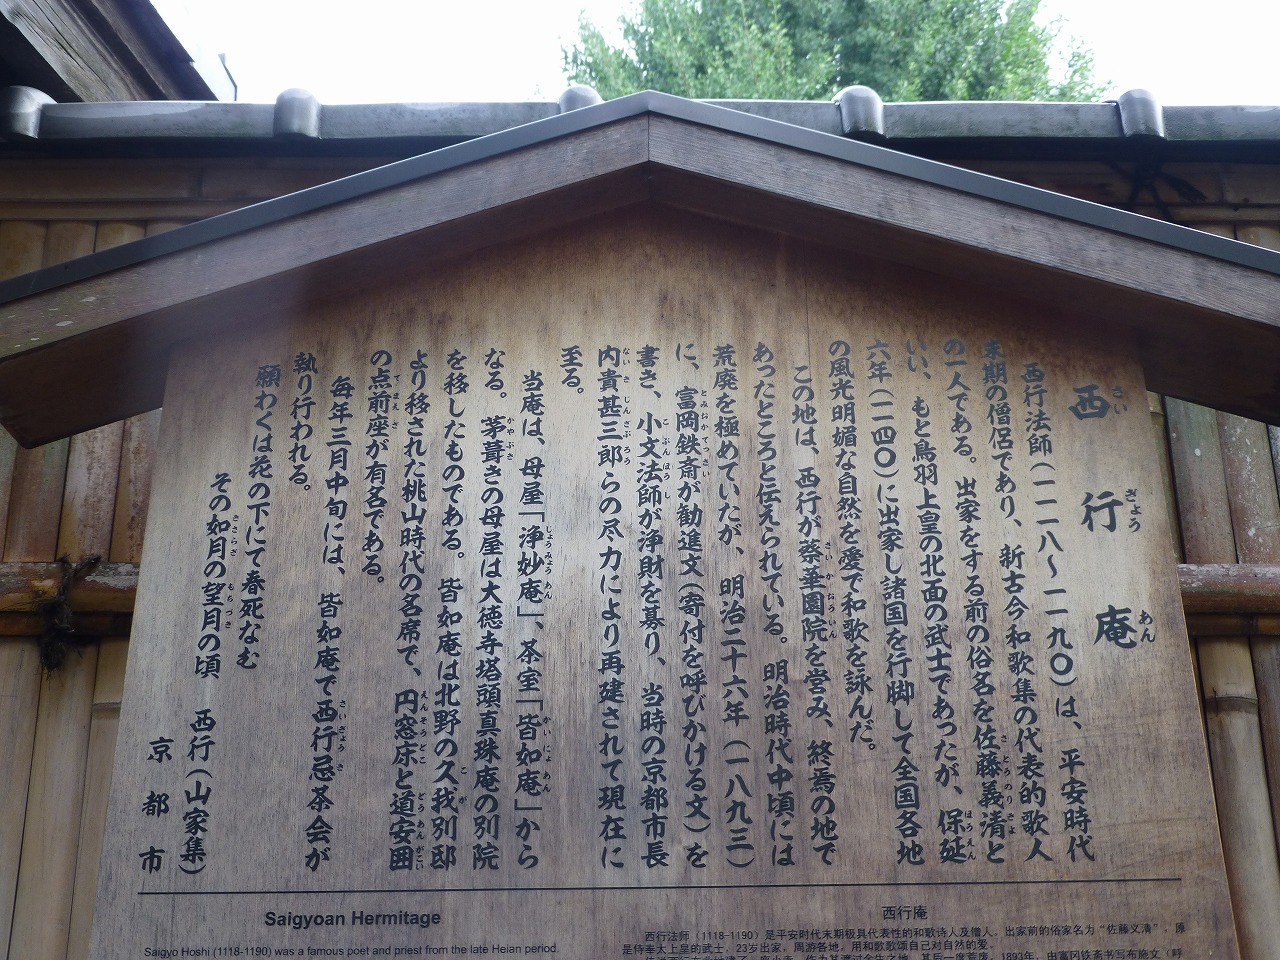 西行庵
西行法師(一一一八～一一九〇)は、平安時代
末期の僧侶であり、新古今和歌集の代表的歌人
の一人である。出家をする前の俗名を佐藤義清と
いい、もと鳥羽上皇の北面の武士であったが、保延
六年(一一四〇)に出家し諸国を行脚して全国各地
の風光明媚な自然を愛で和歌を詠んだ。
この地は、西行が蔡華園院を営み、終焉の地で
あったところと伝えられている。明治時代中頃には
荒廃を極めていたが、明治二十六年(一八九三)
に、富岡鉄斎が勧進文(寄付を呼びかける文)を
書き、小文法師が浄財を募り、当時の京都市長
内貴甚三郎らの尽力により再建されて現在に
至る。
当庵は、母屋「浄妙庵」、茶室「皆如庵」から
なる。茅葺きの母屋は大徳寺塔頭真珠庵の別院
を移したものである。皆如庵は北野の久我別邸
より移された桃山時代の名席で、円窓床と道安囲
の点前座が有名である。
毎年三月中旬には、皆如庵で西行忌茶会が
執り行われる。
願わくは花の下にて春死なむ
その如月の望月の頃 西行(山家集)
京都市
Saigyoan Hermitage
Saigyo Hoshi (1118-1190) was a famous poet and priest from the late Heian period.
西行庵
西行法师（1118-1190）是平安时代末期极具代表性的和歌诗人及僧人。出家前的俗家名为“佐藤义清”，原
是侍奉太上皇的武士，23岁出家，周游各地，用和歌歌颂自己对自然的爱。